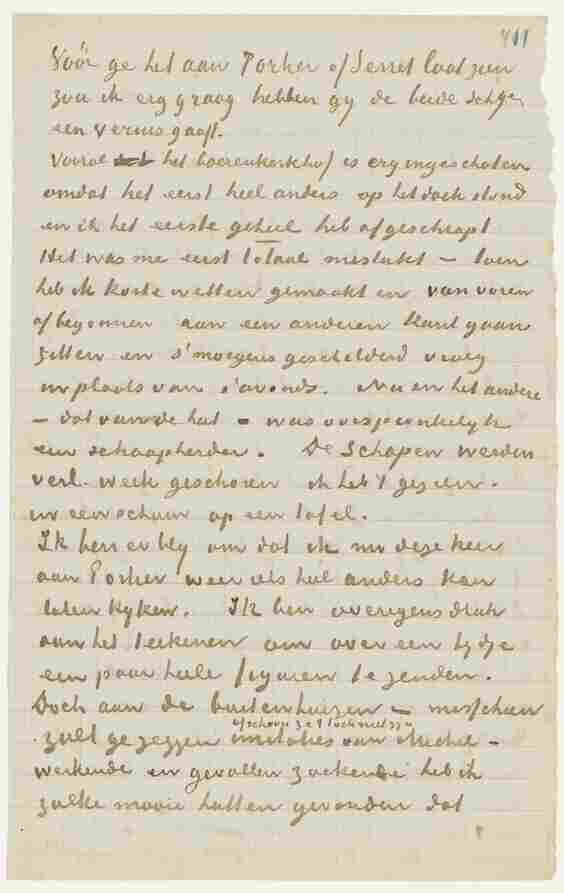 411
Vóór ge het aan Portier of Serret laat zien
zou ik erg graag hebben gy de beide schtje
een vernis gaaft.
Vooral het boerenkerkhof is erg ingeschoten
omdat het eerst heel anders op het doek stond
en ik het eerste geheel heb afgeschrapt
Het was me eerst totaal mislukt – toen
heb ik korte wetten gemaakt en van voren
af begonnen aan een anderen kant gaan
zitten en s'morgens geschilderd vroeg
in plaats van s'avonds. Nu en het andere
– dat van de hut – was oorspronkelyk
een schaapherder. De schapen werden
verl. week geschoren ik heb 't gezien.
in een schuur op een tafel.
Ik ben er bly om dat ik nu deze keer
aan Portier weer iets heel anders kan
laten kyken. Ik ben overigens druk
aan het teekenen om over een tydje
een paar heele figuren te zenden.
Doch aan de buitenhuizen – misschien
ofschoon ze 't toch niet zyn
zult ge zeggen imitaties van Michel –
werkende en gevallen zoekende heb ik
zulke mooie hutten gevonden dat